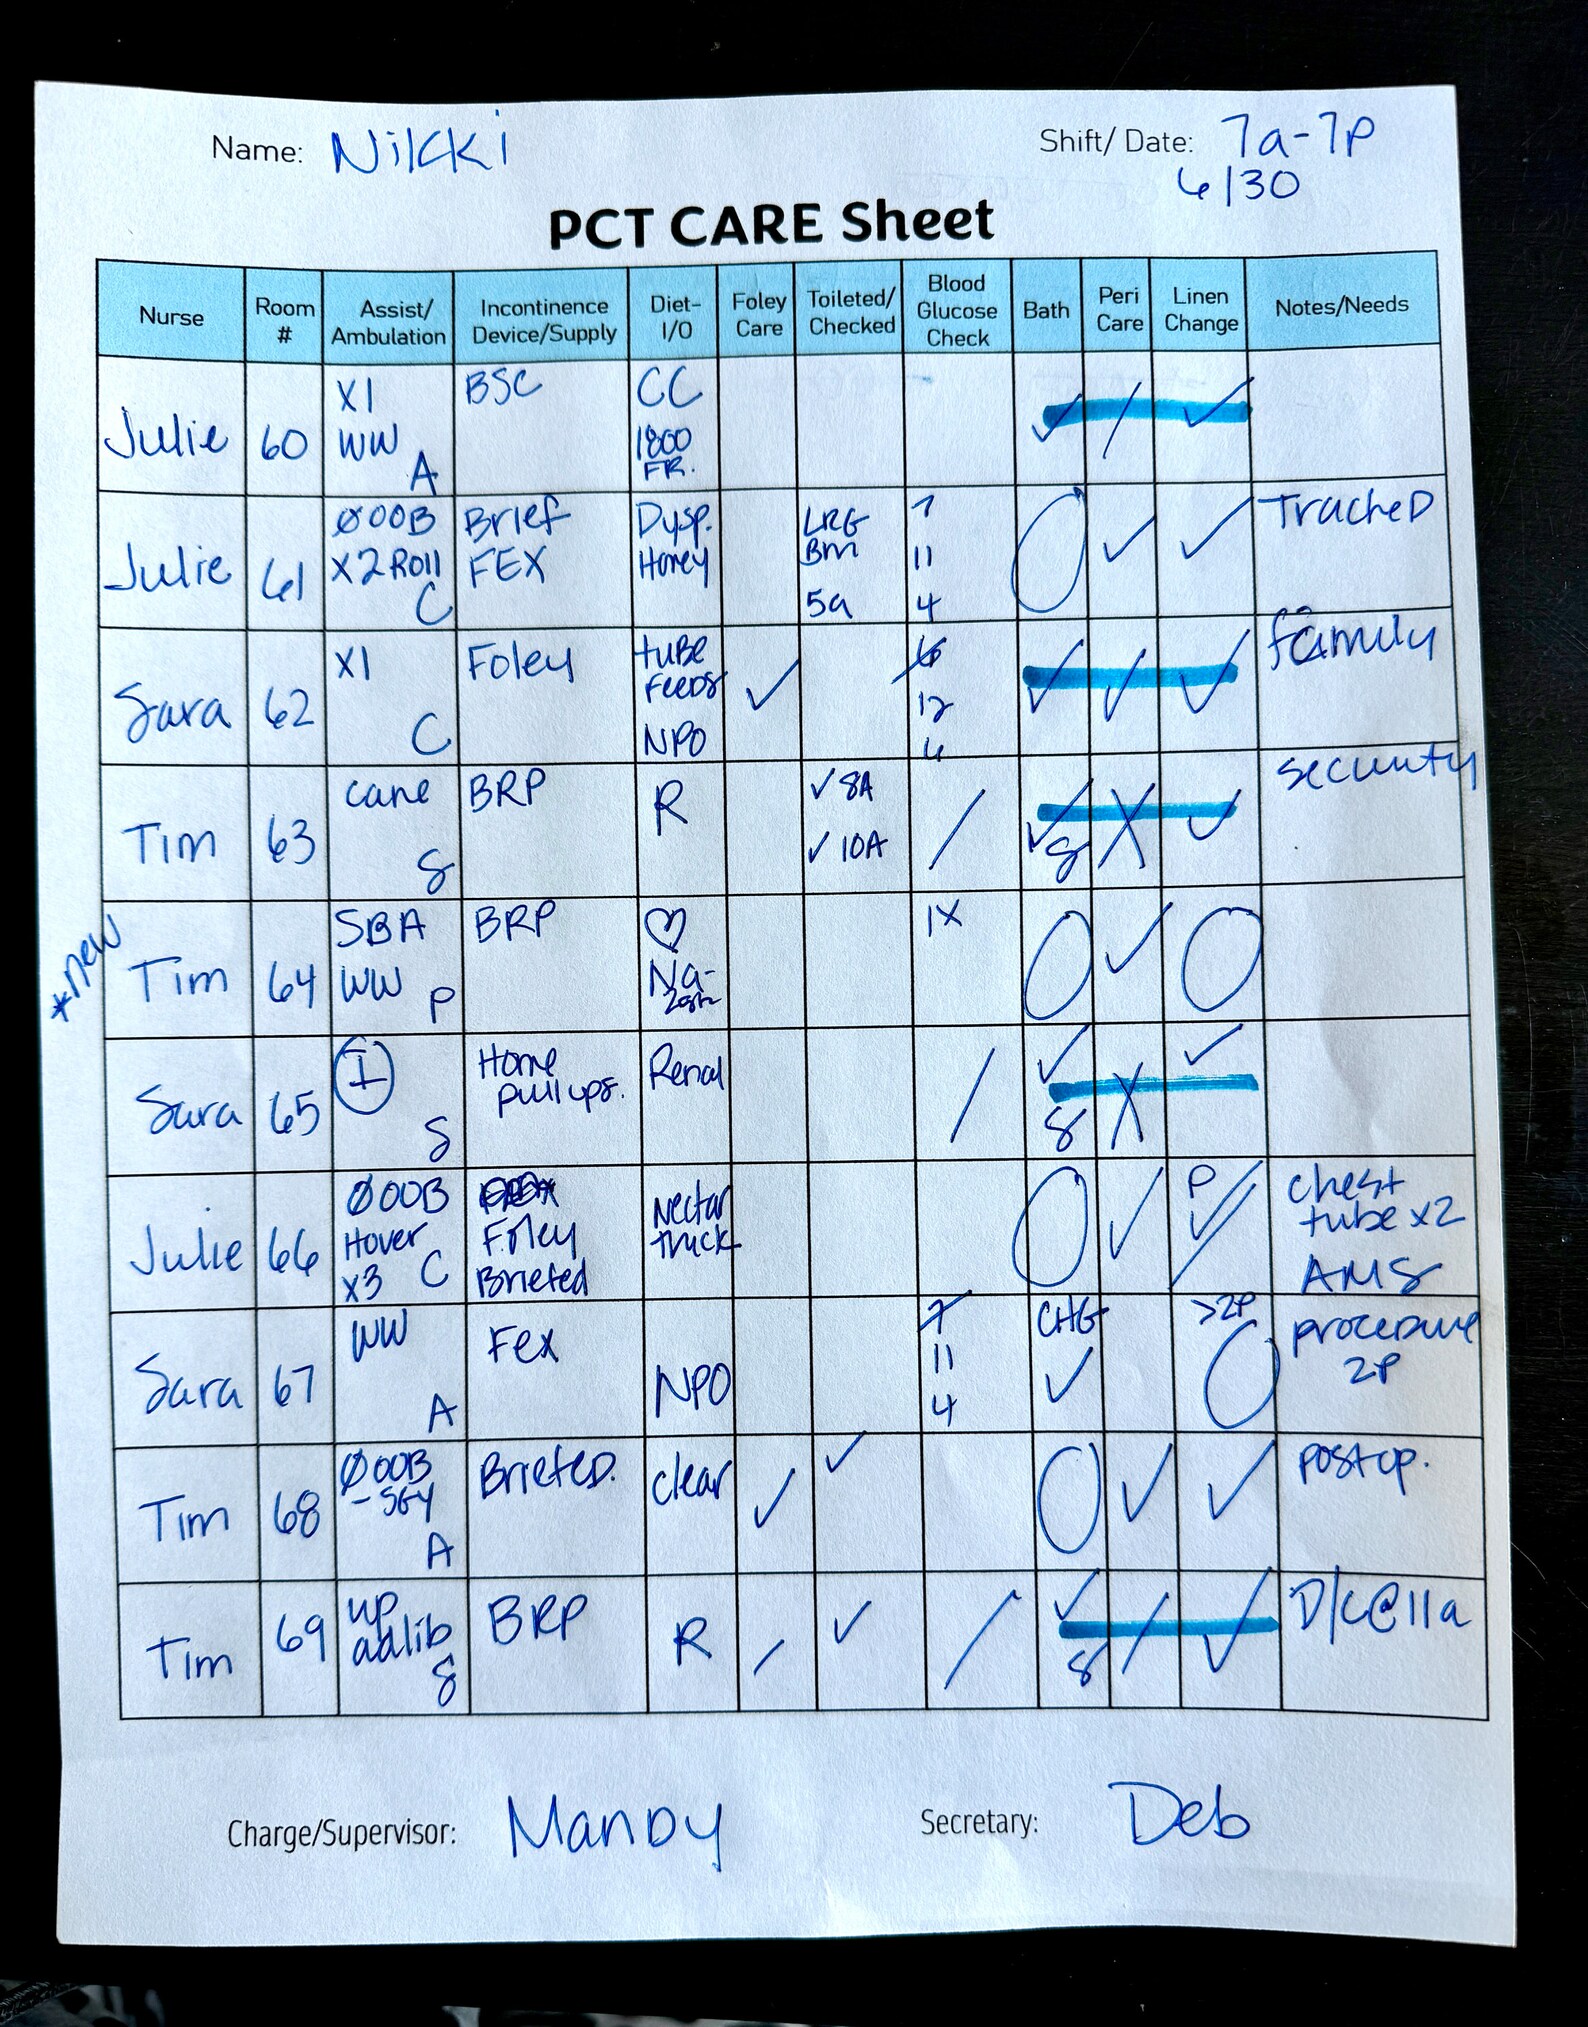 Name: Nikki
Shift/ Date: 7a-7p
6/30
PCT CARE Sheet
Nurse
Room #
Assist/ Ambulation
Incontinence Device/Supply
Diet- I/O
Foley Care
Toileted/ Checked
Blood Glucose Check
Bath
Peri Care
Linen Change
Notes/Needs
Julie 60 X1 WW A BSC CC 1800 FR. ✓ / ✓
Julie 61 ØOOB X2 Roll C Brief FEX Dysp. Honey LRG Bm 5a 7 11 4 O ✓ ✓ TracheD
Sara 62 X1 C Foley tube Feeds NPO ✓ 6 12 6 ✓ ✓ ✓ family
Tim 63 cane S BRP R ✓ 8A ✓ 10A / ✓ S X ✓ security
*new Tim 64 SBA WW P BRP ♡ Na- 1X O ✓ O
Sara 65 I S Home pull ups. Renal / ✓ S X ✓
Julie 66 ØOOB Hover x3 C Foley Briefed Nectar thick O ✓ P ✓ chest tube x2 AMS
Sara 67 WW A Fex NPO 7 11 4 CHG ✓ >2P O procedure 2P
Tim 68 ØOOB A Briefed. clear ✓ ✓ O ✓ ✓ post op.
Tim 69 up adlib S BRP R / ✓ / ✓ S / ✓ D/C@11a
Charge/Supervisor: ManDy
Secretary: Deb